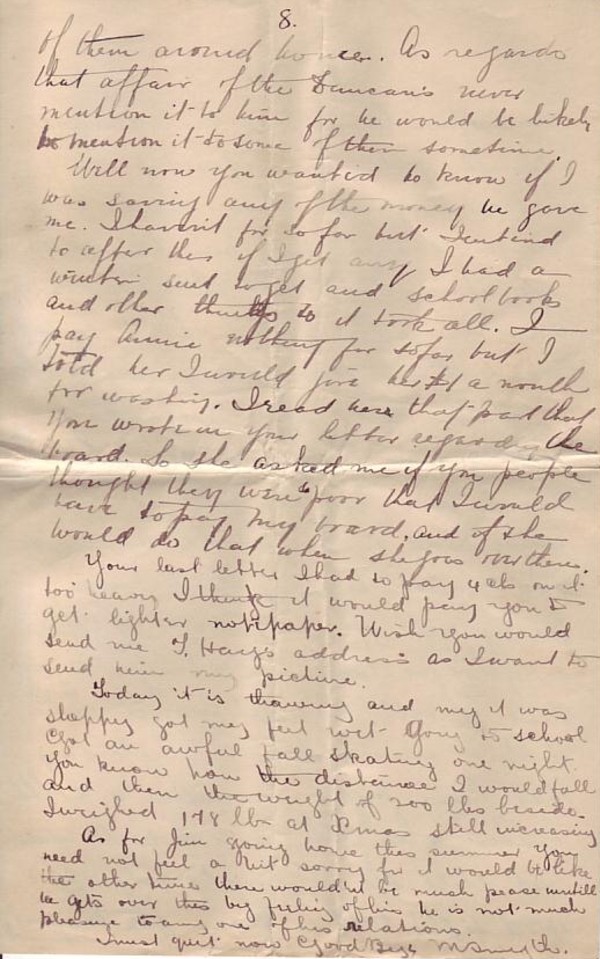 8.
of them around home. As regards
that affair of the Duncan's never
mention it to him for he would be likely
to mention it to some of them sometime.
Well now you wanted to know if I
was saving any of the money he gave
me. I havent for so far but I intend
to after this if I get any I had a
winter suit to get and school books
and other things so it took all. I
pay Annie nothing for so far but I
told her I would give her $1 a month
for washing. I read her that part that
you wrote in your letter regarding the
board. So she asked me if you people
thought they were so poor that I would
have to pay my board, and if she
would do that when she goes over there.
Your last letter I had to pay 4 cts on it
too heavy I think it would pay you to
get lighter notepaper. Wish you would
send me T. Hays address as I want to
send him my picture.
Today it is thawing and my it was
sloppy got my feet wet going to school
Got an awful fall skating one night.
You know how the distance I would fall
and then the weight of 200 lbs beside.
I weighed 178 lbs at Xmas still increasing
As for Jim going home this summer you
need not feel a bit sorry for it would be like
the other time there would'nt be much pease untill
he gets over this big feeling of his he is not much
pleasure to any one of his relations.
I must quit now Good Bye